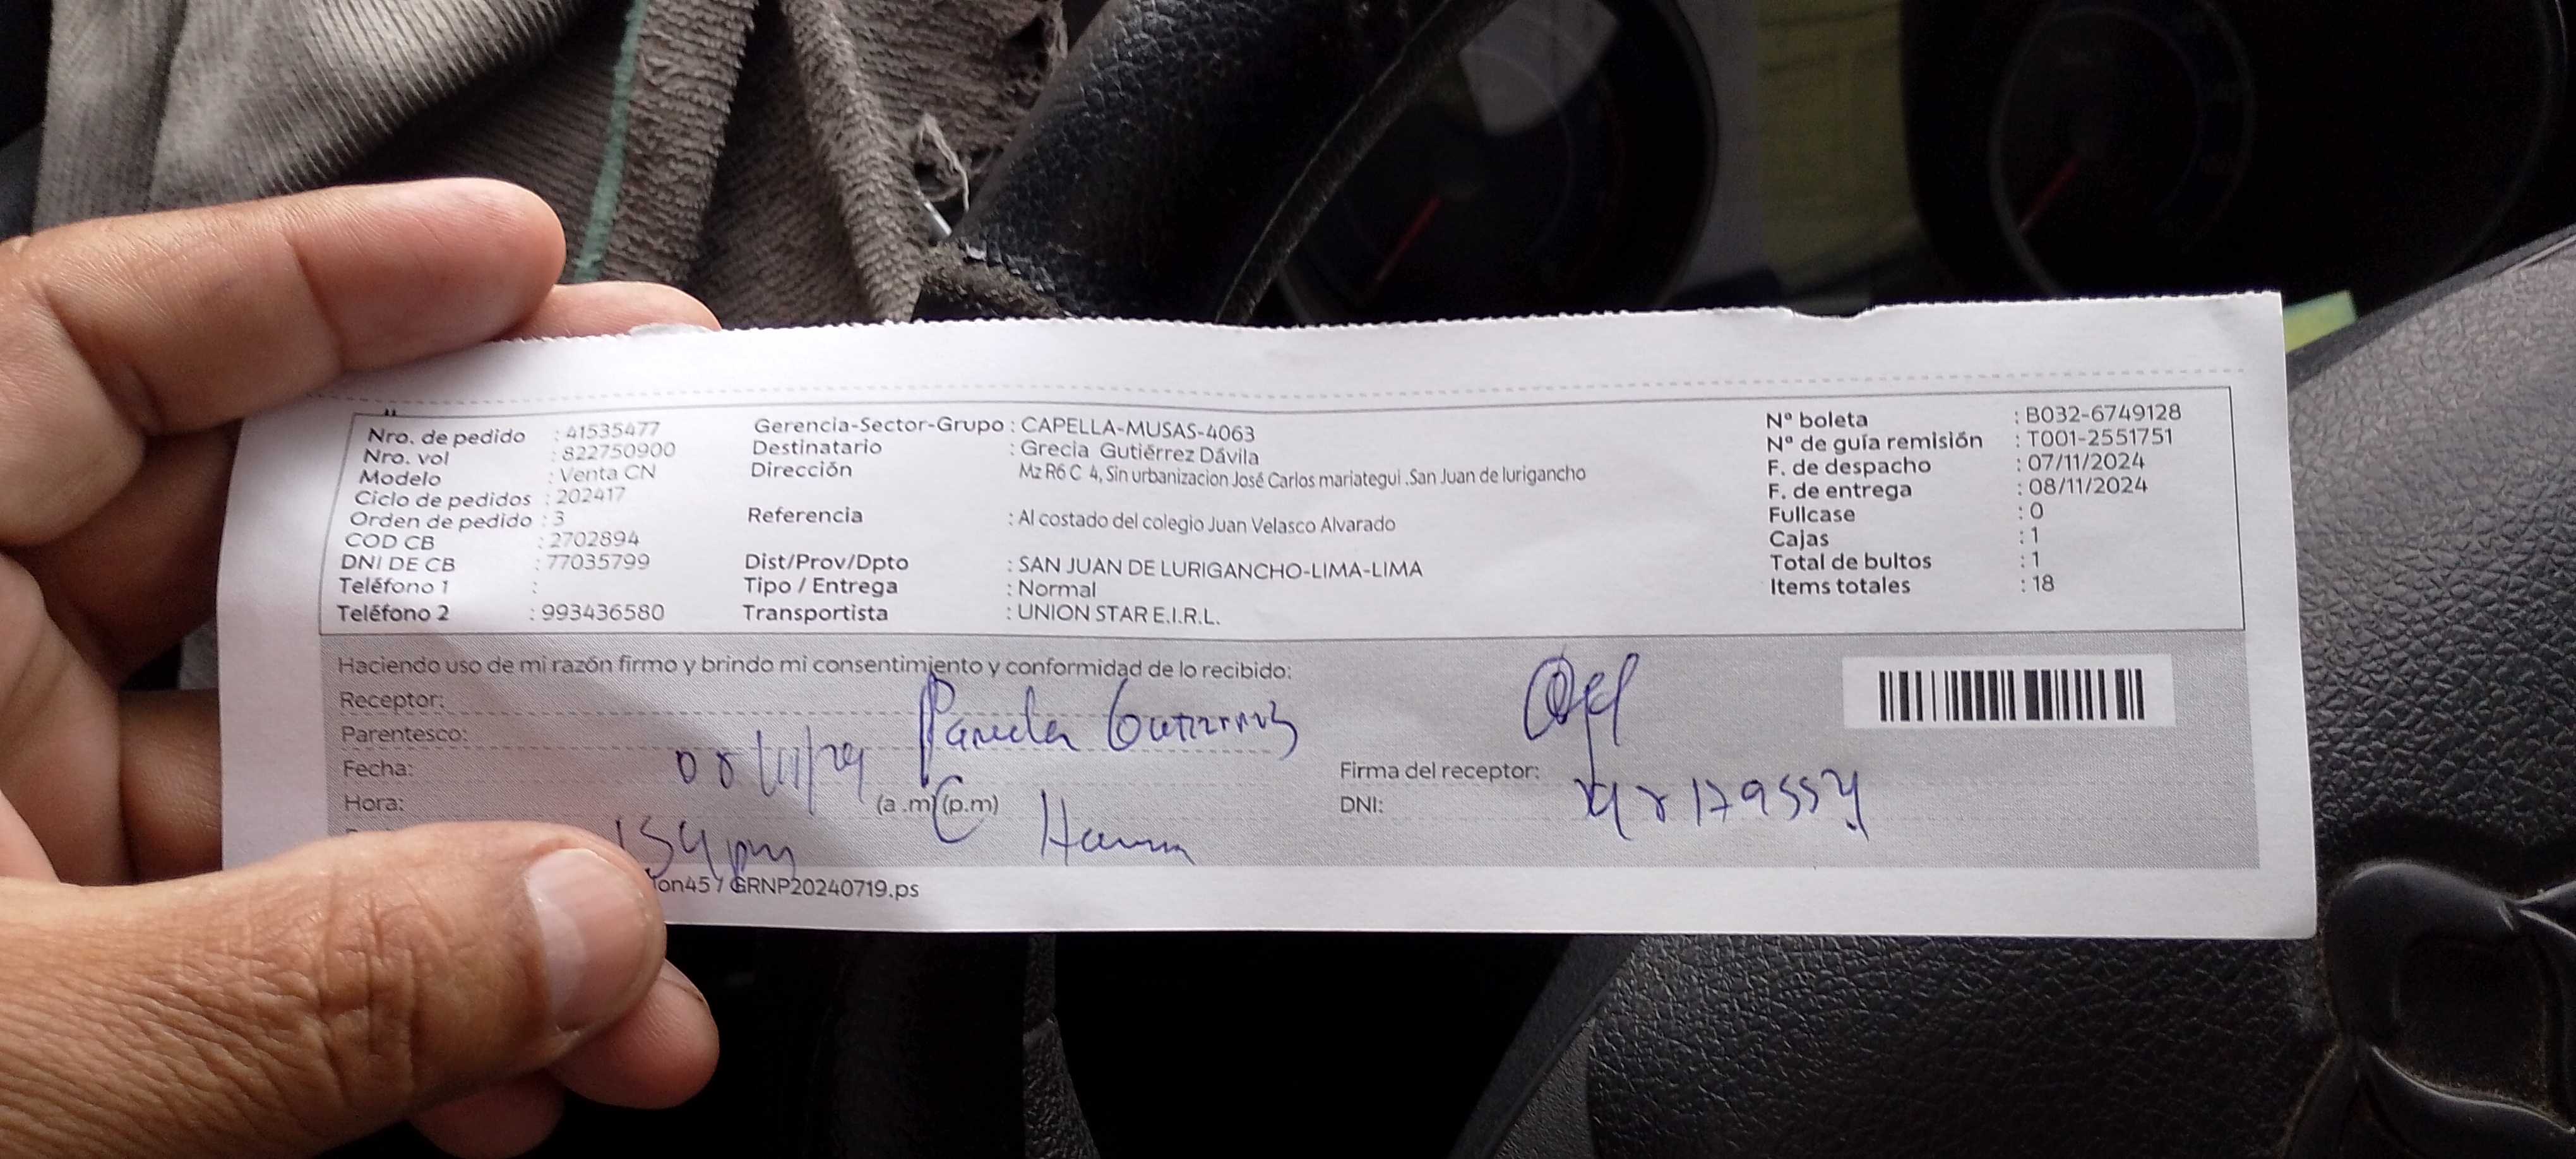 Nro. de pedido : 41535477
Nro. vol : 822750900
Modelo : Venta CN
Ciclo de pedidos : 202417
Orden de pedido : 3
COD CB : 2702894
DNI DE CB : 77035799
Teléfono 1 :
Teléfono 2 : 993436580
Gerencia-Sector-Grupo : CAPELLA-MUSAS-4063
Destinatario : Grecia Gutiérrez Dávila
Dirección Mz R6 C 4, Sin urbanizacion José Carlos mariategui .San Juan de lurigancho
Referencia : Al costado del colegio Juan Velasco Alvarado
Dist/Prov/Dpto : SAN JUAN DE LURIGANCHO-LIMA-LIMA
Tipo / Entrega : Normal
Transportista : UNION STAR E.I.R.L.
Nº boleta : B032-6749128
Nº de guía remisión : T001-2551751
F. de despacho : 07/11/2024
F. de entrega : 08/11/2024
Fullcase : 0
Cajas : 1
Total de bultos : 1
Items totales : 18
Haciendo uso de mi razón firmo y brindo mi consentimiento y conformidad de lo recibido:
Receptor: Pamela Gutierrez
Parentesco:
Fecha:
Hora: (a .m) (p.m)
154 pm
Firma del receptor:
DNI:
ton45 / GRNP20240719.ps